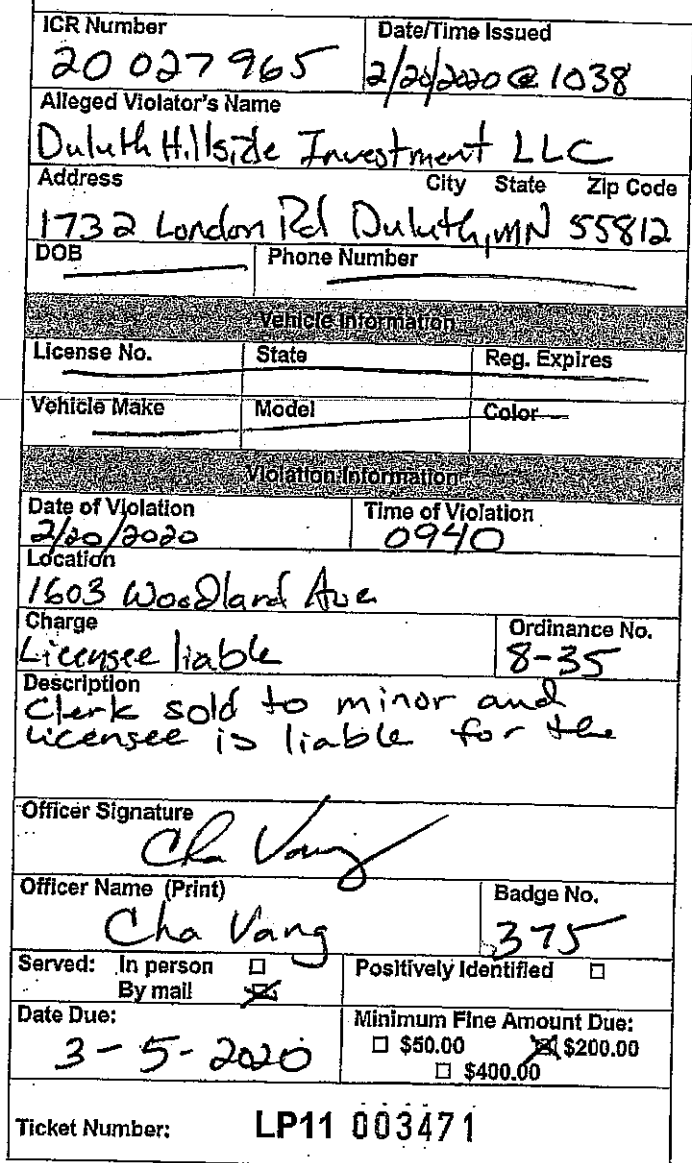 ICR Number Date/Time Issued
20 027965 2/20/2020 @ 1038
Alleged Violator's Name
Duluth Hillside Investment LLC
Address City State Zip Code
1732 London Rd Duluth, MN 55812
DOB Phone Number
Vehicle Information
License No. State Reg. Expires
Vehicle Make Model Color
Violation Information
Date of Violation Time of Violation
2/20/2020 0940
Location
1603 Woodland Ave
Charge Ordinance No.
Licensee liable 8-35
Description
Clerk sold to minor and
licensee is liable for the
Officer Signature
Cha Vang
Officer Name (Print) Badge No.
Cha Vang 375
Served: In person ☐ Positively Identified ☐
By mail ☒
Date Due: Minimum Fine Amount Due:
3-5-2020 ☐ $50.00 ☒ $200.00
☐ $400.00
Ticket Number: LP11 003471